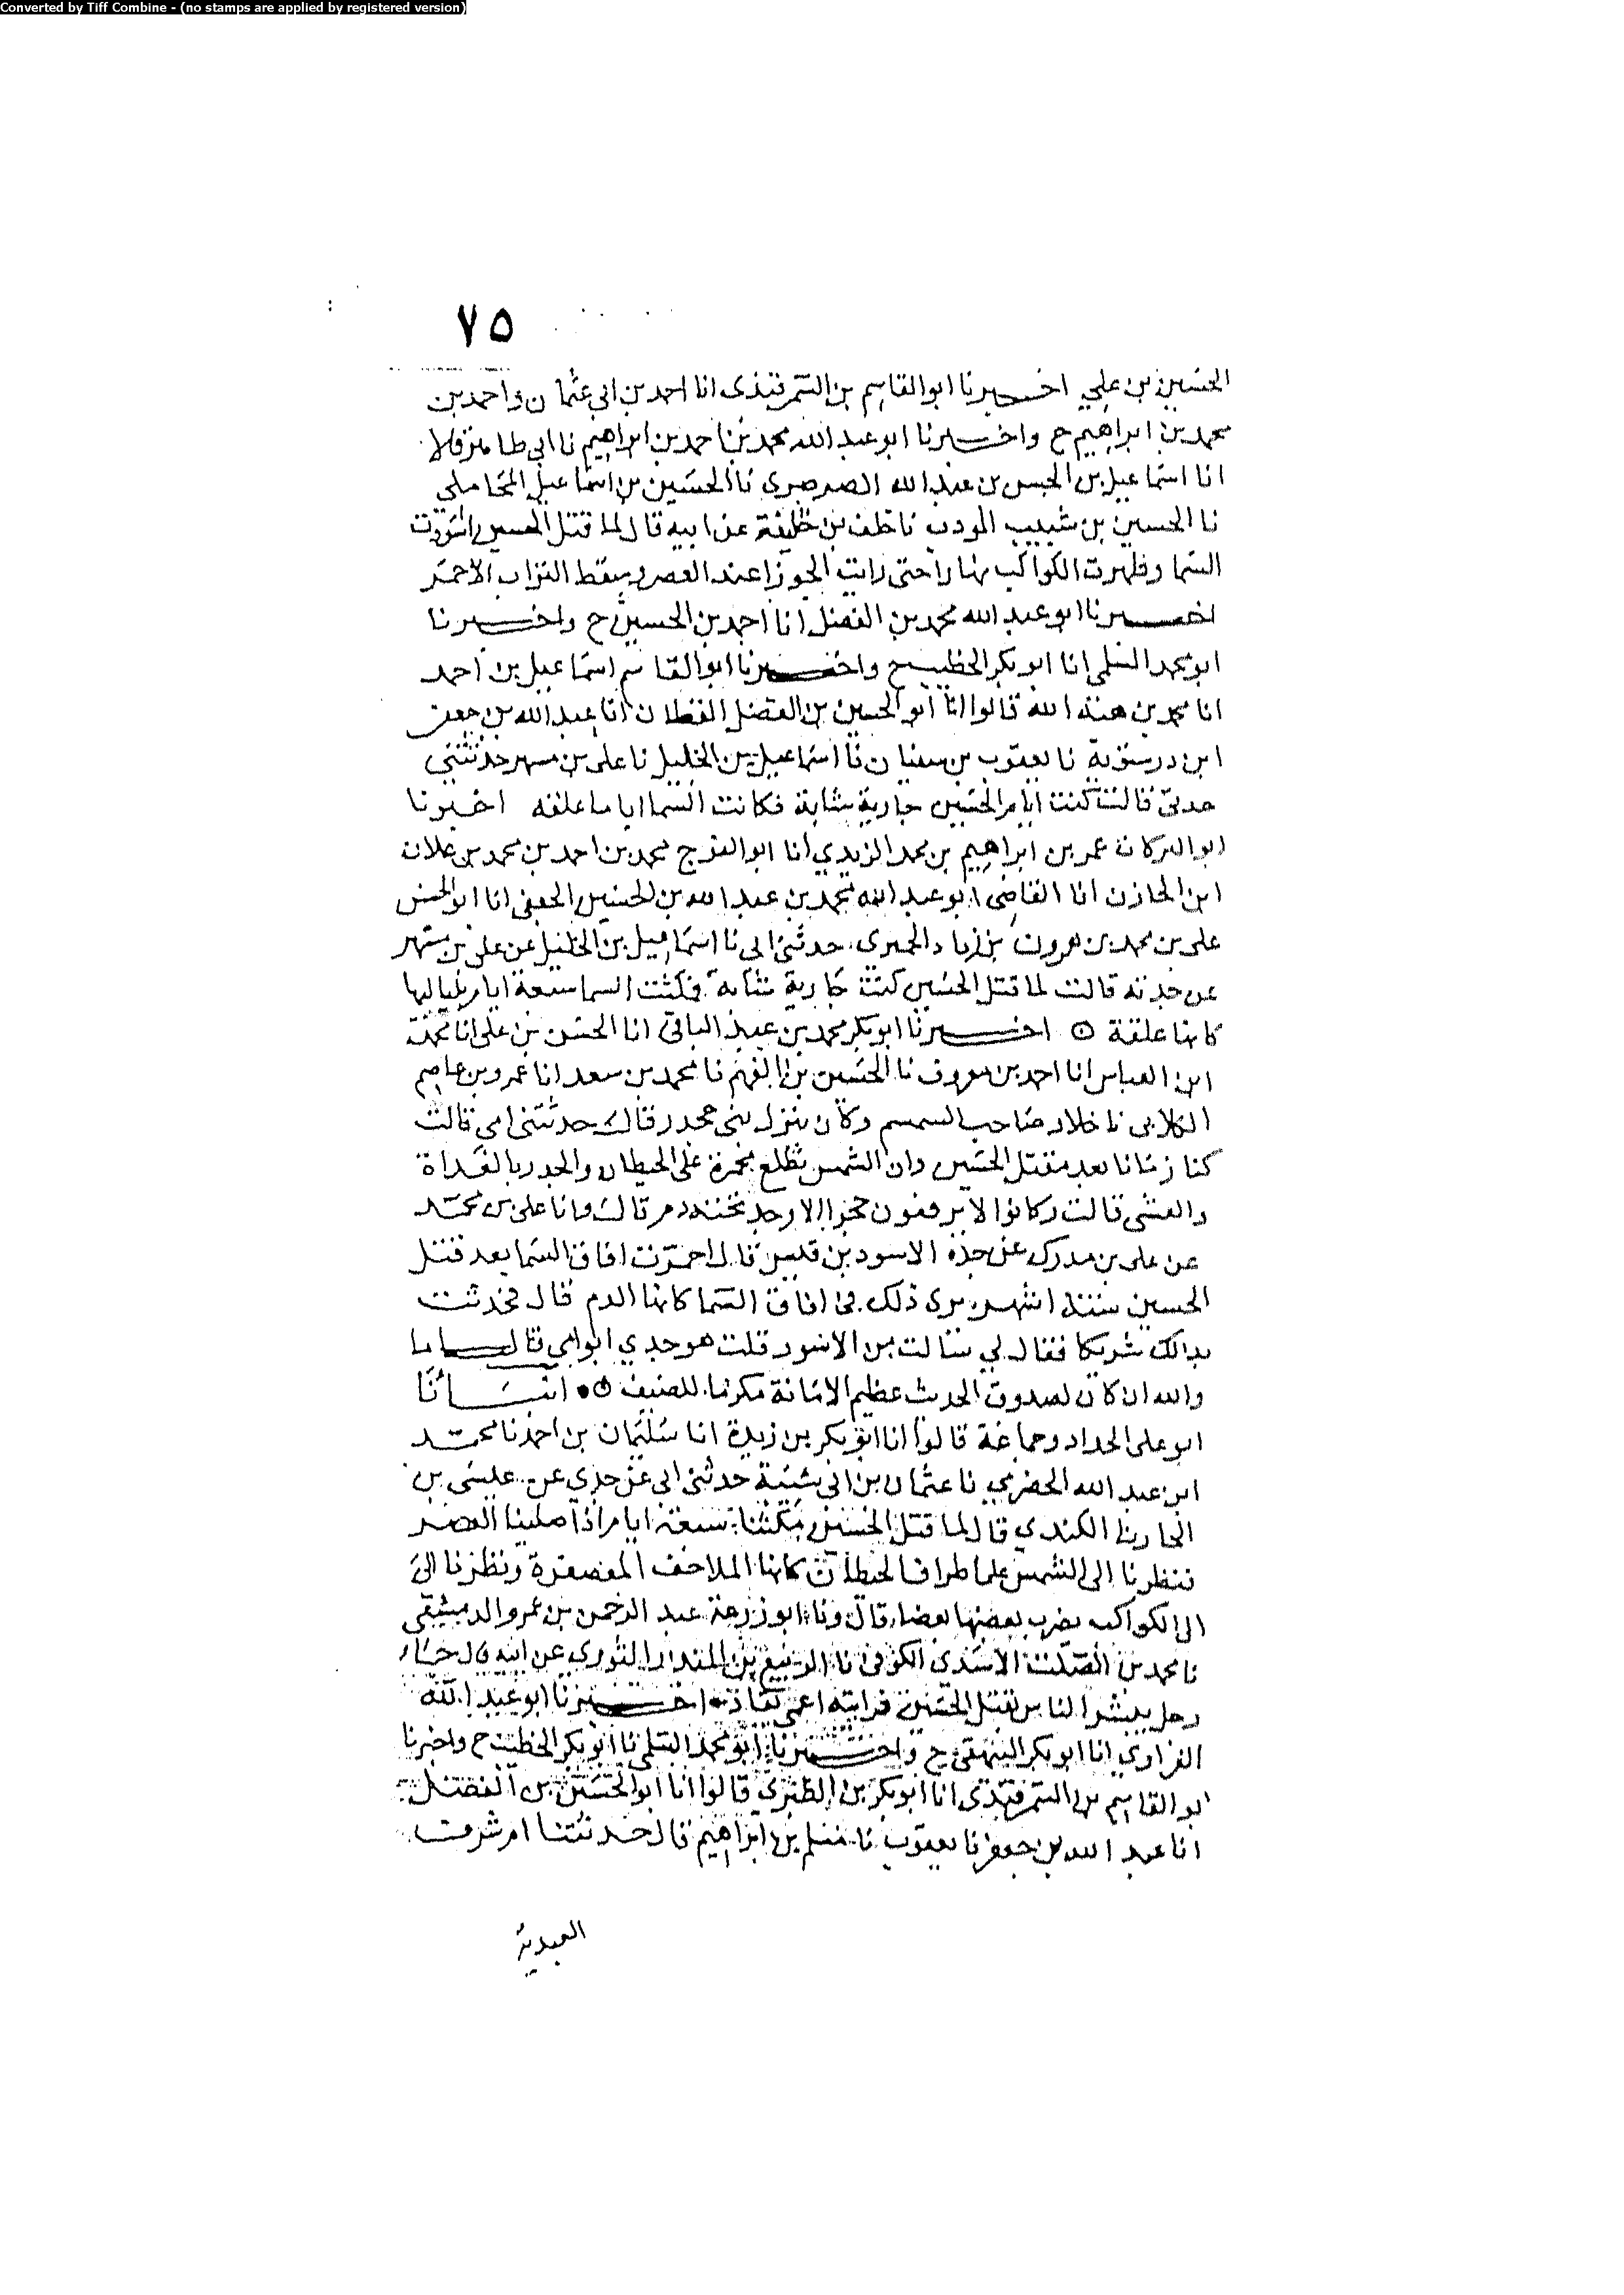 Converted by Tiff Combine - (no stamps are applied by registered version)
٧٥
الحسين بن علي اخبرنا ابو القاسم بن السمرقندى انا احمد بن ابى عثمان واحمد بن
محمد بن ابراهيم ح واخبرنا ابو عبد الله محمد بن احمد بن ابراهيم نا ابى قالا
انا اسماعيل بن الحسن بن عبد الله الصرصرى نا الحسين بن اسماعيل المحاملي
نا الحسين بن شبيب المودب نا خلف بن خليفة عن ابيه قال لما قتل الحسين اسودت
السما وظهرت الكواكب نهارا حتى رايت الجوزا عند العصر وسقط التراب الاحمر
اخبرنا ابو عبد الله محمد بن الفضل انا احمد بن الحسين ح واخبرنا
ابو محمد السلمى انا ابو بكر الخطيب ح واخبرنا ابو القاسم اسماعيل بن احمد
انا محمد بن هبة الله قالوا انا ابو الحسين بن الفضل القطان انا عبد الله بن جعفر
ابن درستويه نا يعقوب بن سفيان نا اسماعيل بن الخليل نا على بن مسهر حدثتنى
جدتى قالت كنت ايام الحسين جارية شابة فكانت السما اياما علقه اخبرنا
ابو البركات عمر بن ابراهيم بن محمد الزيدي انا ابو الفرج محمد بن احمد بن محمد بن علان
ابن الخازن انا القاضى ابو عبد الله محمد بن عبد الله بن الحسين الجعفى انا ابو الحسن
على بن محمد بن هرون بن زياد الحميرى حدثنى ابى نا اسماعيل بن الخليل عن على بن مسهر
عن جدته قالت لما قتل الحسين كنت جارية شابة فمكثت السما سبعة ايام بلياليها
كانها علقة اخبرنا ابو بكر محمد بن عبد الباقى انا الحسن بن على انا محمد
ابن العباس انا احمد بن معروف نا الحسين بن الفهم نا محمد بن سعد انا عمرو بن عاصم
الكلابى نا خلاد صاحب السمسم وكان ينزل بنى جحدر قال حدثتنى امى قالت
كنا زمانا بعد مقتل الحسين وان الشمس تطلع محمرة على الحيطان والجدر بالغداة
والعشى قالت وكانوا لا يرفعون حجرا الا وجد تحته دم قال وانا على بن محمد
عن على بن مدرك عن جده الاسود بن قيس قال احمرت افاق السما بعد قتل
الحسين ستة اشهر يرى ذلك فى افاق السما كانها الدم قال فحدثت
بذلك شريكا فقال لي ما انت من الاسود قلت هو جدي ابو امى قال اما
والله ان كان لصدوق الحديث عظيم الامانة مكرما للضيف انبانا
ابو على الحداد وجماعة قالوا انا ابو بكر بن ريذة انا سليمان بن احمد نا محمد
ابن عبد الله الحضرمي نا عثمان بن ابى شيبة حدثنى ابى عن جدي عن عيسى بن
الحارث الكندي قال لما قتل الحسين مكثنا سبعة ايام اذا صلينا العصر
ننظرنا الى الشمس على اطراف الحيطان كانها الملاحف المعصفرة ونظرنا الى
الى الكواكب يضرب بعضها بعضا قال ونا ابو زرعة عبد الرحمن بن عمرو الدمشقى
نا محمد بن الصلت الاسدى الكوفى نا الربيع بن المنذر الثوري عن ابيه قال جا
رجل يبشر الناس بقتل الحسين فرايته اعمى يقاد اخبرنا ابو عبد الله
الفراوي انا ابو بكر البيهقى ح واخبرنا ابو محمد السلمى نا ابو بكر الخطيب ح واخبرنا
ابو القاسم بن السمرقندى انا ابو بكر بن الطبرى قالوا انا ابو الحسين بن الفضل
انا عبد الله بن جعفر نا يعقوب نا مسلم بن ابراهيم قال حدثتنا ام شرف
العبدية